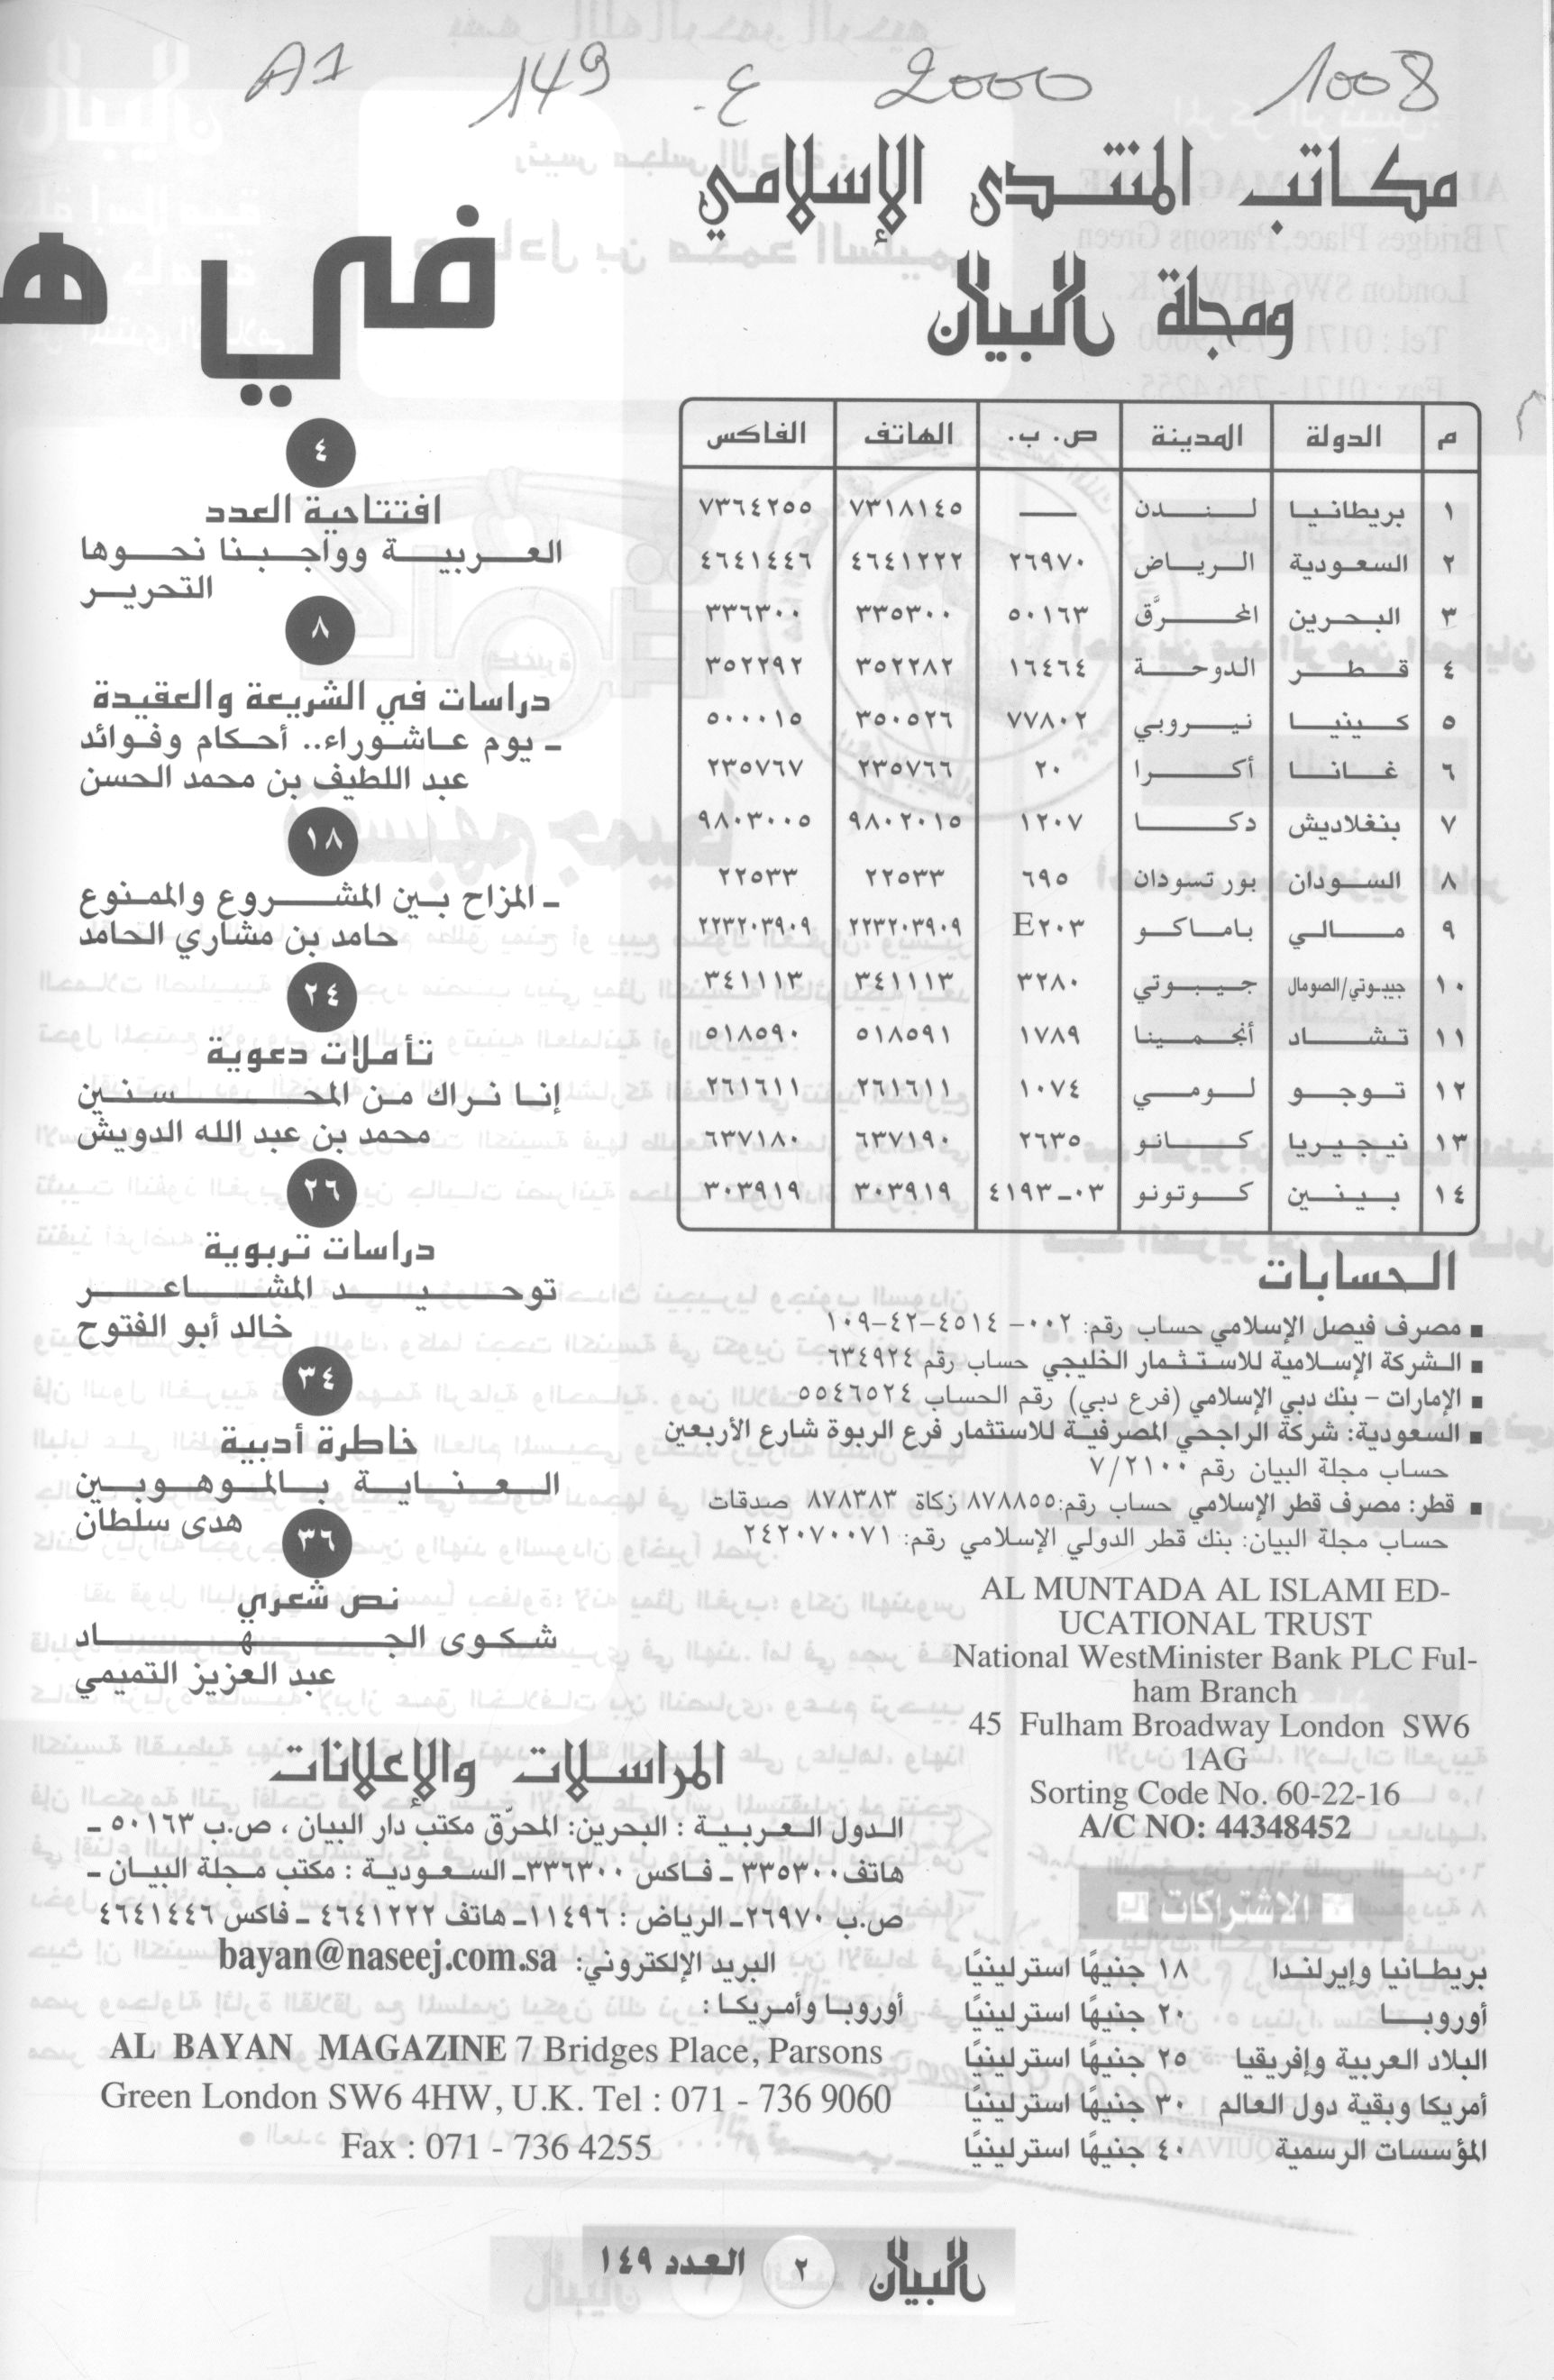 1008 2000 ع. 149 A1
مكاتب المنتدى الإسلامي
ومجلة البيان
م الدولة المدينة ص. ب. الهاتف الفاكس
١ بريطانيا لندن — ٧٣١٨١٤٥ ٧٣٦٤٢٥٥
٢ السعودية الرياض ٢٦٩٧٠ ٤٦٤١٢٢٢ ٤٦٤١٤٤٦
٣ البحرين المحرَّق ٥٠١٦٣ ٣٣٥٣٠٠ ٣٣٦٣٠٠
٤ قطر الدوحة ١٦٤٦٤ ٣٥٢٢٨٢ ٣٥٢٢٩٢
٥ كينيا نيروبي ٧٧٨٠٢ ٣٥٠٥٢٦ ٥٠٠٠١٥
٦ غانا أكرا ٢٠ ٢٣٥٧٦٦ ٢٣٥٧٦٧
٧ بنغلاديش دكا ١٢٠٧ ٩٨٠٢٠١٥ ٩٨٠٣٠٠٥
٨ السودان بور تسودان ٦٩٥ ٢٢٥٣٣ ٢٢٥٣٣
٩ مالي باماكو E٢٠٣ ٢٢٣٢٠٣٩٠٩ ٢٢٣٢٠٣٩٠٩
١٠ جيبوتي/الصومال جيبوتي ٣٢٨٠ ٣٤١١١٣ ٣٤١١١٣
١١ تشاد أنجمينا ١٧٨٩ ٥١٨٥٩١ ٥١٨٥٩٠
١٢ توجو لومي ١٠٧٤ ٢٦١٦١١ ٢٦١٦١١
١٣ نيجيريا كانو ٢٦٣٥ ٦٣٧١٩٠ ٦٣٧١٨٠
١٤ بينين كوتونو ٠٣-٤١٩٣ ٣٠٣٩١٩ ٣٠٣٩١٩
الحسابات
■ مصرف فيصل الإسلامي حساب رقم: ٠٠٢-٤٥١٤-٤٢-١٠٩
■ الشركة الإسلامية للاستثمار الخليجي حساب رقم ٦٣٤٩٢٤
■ الإمارات – بنك دبي الإسلامي (فرع دبي) رقم الحساب ٥٥٤٦٥٢٤
■ السعودية: شركة الراجحي المصرفية للاستثمار فرع الربوة شارع الأربعين
حساب مجلة البيان رقم ٧/٢١٠٠
■ قطر: مصرف قطر الإسلامي حساب رقم:٨٧٨٨٥٥ زكاة ٨٧٨٣٨٣ صدقات
حساب مجلة البيان: بنك قطر الدولي الإسلامي رقم: ٢٤٢٠٧٠٠٧١
AL MUNTADA AL ISLAMI ED-
UCATIONAL TRUST
National WestMinister Bank PLC Ful-
ham Branch
45 Fulham Broadway London SW6
1AG
Sorting Code No. 60-22-16
A/C NO: 44348452
الاشتراكات
بريطانيا وإيرلندا ١٨ جنيهًا استرلينيًا
أوروبا ٢٠ جنيهًا استرلينيًا
البلاد العربية وإفريقيا ٢٥ جنيهًا استرلينيًا
أمريكا وبقية دول العالم ٣٠ جنيهًا استرلينيًا
المؤسسات الرسمية ٤٠ جنيهًا استرلينيًا
في ه
٤
افتتاحية العدد
العربية وواجبنا نحوها
التحرير
٨
دراسات في الشريعة والعقيدة
ـ يوم عاشوراء.. أحكام وفوائد
عبد اللطيف بن محمد الحسن
١٨
ـ المزاح بين المشروع والممنوع
حامد بن مشاري الحامد
٢٤
تأملات دعوية
إنا نراك من المحسنين
محمد بن عبد الله الدويش
٢٦
دراسات تربوية
توحيد المشاعر
خالد أبو الفتوح
٣٤
خاطرة أدبية
العناية بالموهوبين
هدى سلطان
٣٦
نص شعري
شكوى الجهاد
عبد العزيز التميمي
المراسلات والإعلانات
الدول العربية : البحرين: المحرّق مكتب دار البيان ، ص.ب ٥٠١٦٣ ـ
هاتف ٣٣٥٣٠٠ ـ فاكس ٣٣٦٣٠٠ـ السعودية : مكتب مجلة البيان ـ
ص.ب ٢٦٩٧٠ـ الرياض : ١١٤٩٦ـ هاتف ٤٦٤١٢٢٢ ـ فاكس ٤٦٤١٤٤٦
البريد الإلكتروني: bayan@naseej.com.sa
أوروبا وأمريكا :
AL BAYAN MAGAZINE 7 Bridges Place, Parsons
Green London SW6 4HW, U.K. Tel : 071 - 736 9060
Fax : 071 - 736 4255
البيان ٢ العدد ١٤٩